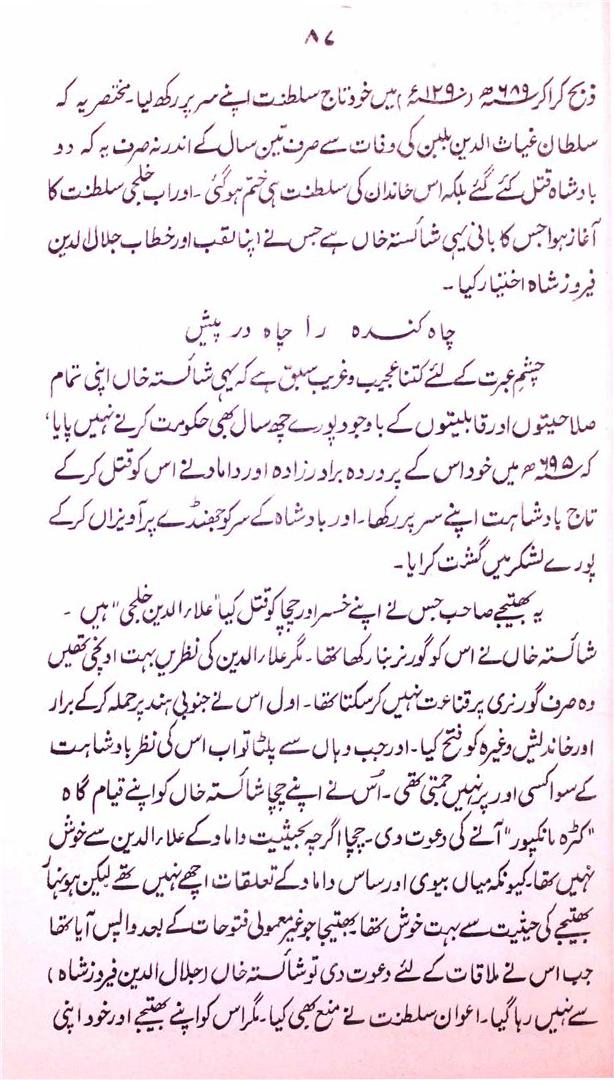 ۸۷
ذبح کراکر ۶۸۹ھ (۱۲۹۰ء) میں خود تاج سلطنت اپنے سر پر رکھ لیا۔ مختصر یہ کہ
سلطان غیاث الدین بلبن کی وفات سے صرف تین سال کے اندر نہ صرف یہ کہ دو
بادشاہ قتل کئے گئے بلکہ اس خاندان کی سلطنت ہی ختم ہوگئی۔ اور اب خلجی سلطنت کا
آغاز ہوا جس کا بانی یہی شائستہ خاں ہے جس نے اپنا لقب اور خطاب جلال الدین
فیروز شاہ اختیار کیا۔
چاہ کندہ را چاہ در پیش
چشمِ عبرت کے لئے کتنا عجیب و غریب سبق ہے کہ یہی شائستہ خاں اپنی تمام
صلاحیتوں اور قابلیتوں کے باوجود پورے چھ سال بھی حکومت کرنے نہیں پایا،
کہ ۶۹۵ھ میں خود اس کے پروردہ برادر زادہ اور داماد نے اس کو قتل کرکے
تاج بادشاہت اپنے سر پر رکھا۔ اور بادشاہ کے سر کو جھنڈے پر آویزاں کرکے
پورے لشکر میں گشت کرایا۔
یہ بھتیجے صاحب جس نے اپنے خسر اور چچا کو قتل کیا "علاء الدین خلجی" ہیں۔
شائستہ خاں نے اس کو گورنر بنا رکھا تھا۔ مگر علاء الدین کی نظریں بہت اونچی تھیں
وہ صرف گورنری پر قناعت نہیں کرسکتا تھا۔ اول اس نے جنوبی ہند پر حملہ کرکے برار
اور خاندیش وغیرہ کو فتح کیا۔ اور جب وہاں سے پلٹا تو اب اس کی نظر بادشاہت
کے سوا کسی اور پر نہیں جمتی تھی۔ اُس نے اپنے چچا شائستہ خاں کو اپنے قیام گاہ
"کڑہ مانکپور" آنے کی دعوت دی۔ چچا اگرچہ بحیثیت داماد کے علاء الدین سے خوش
نہیں تھا۔ کیونکہ میاں بیوی اور ساس داماد کے تعلقات اچھے نہیں تھے لیکن ہونہار
بھتیجے کی حیثیت سے بہت خوش تھا۔ بھتیجا جو غیر معمولی فتوحات کے بعد واپس آیا تھا
جب اس نے ملاقات کے لئے دعوت دی تو شائستہ خاں (جلال الدین فیروز شاہ)
سے نہیں رہا گیا۔ اعوان سلطنت نے منع بھی کیا۔ مگر اس کو اپنے بھتیجے اور خود اپنی